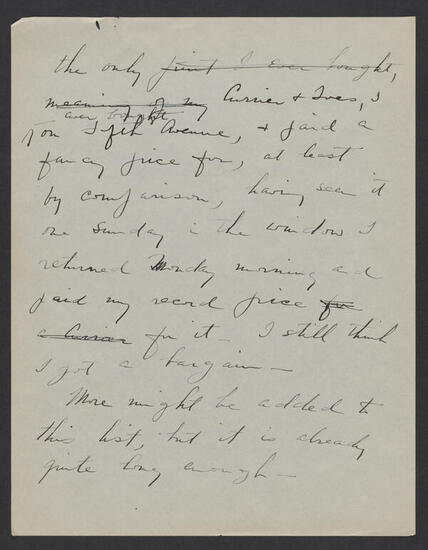 the only print I ever bought,
meaning of my Currier & Ives, I
ever bought
on Fifth Avenue, & paid a
fancy price for, at least
by comparison, having seen it
one Sunday in the window I
returned Monday morning and
paid my record price for
a Currier for it — I still think
I got a bargain —
More might be added to
this list, but it is already
quite long enough —